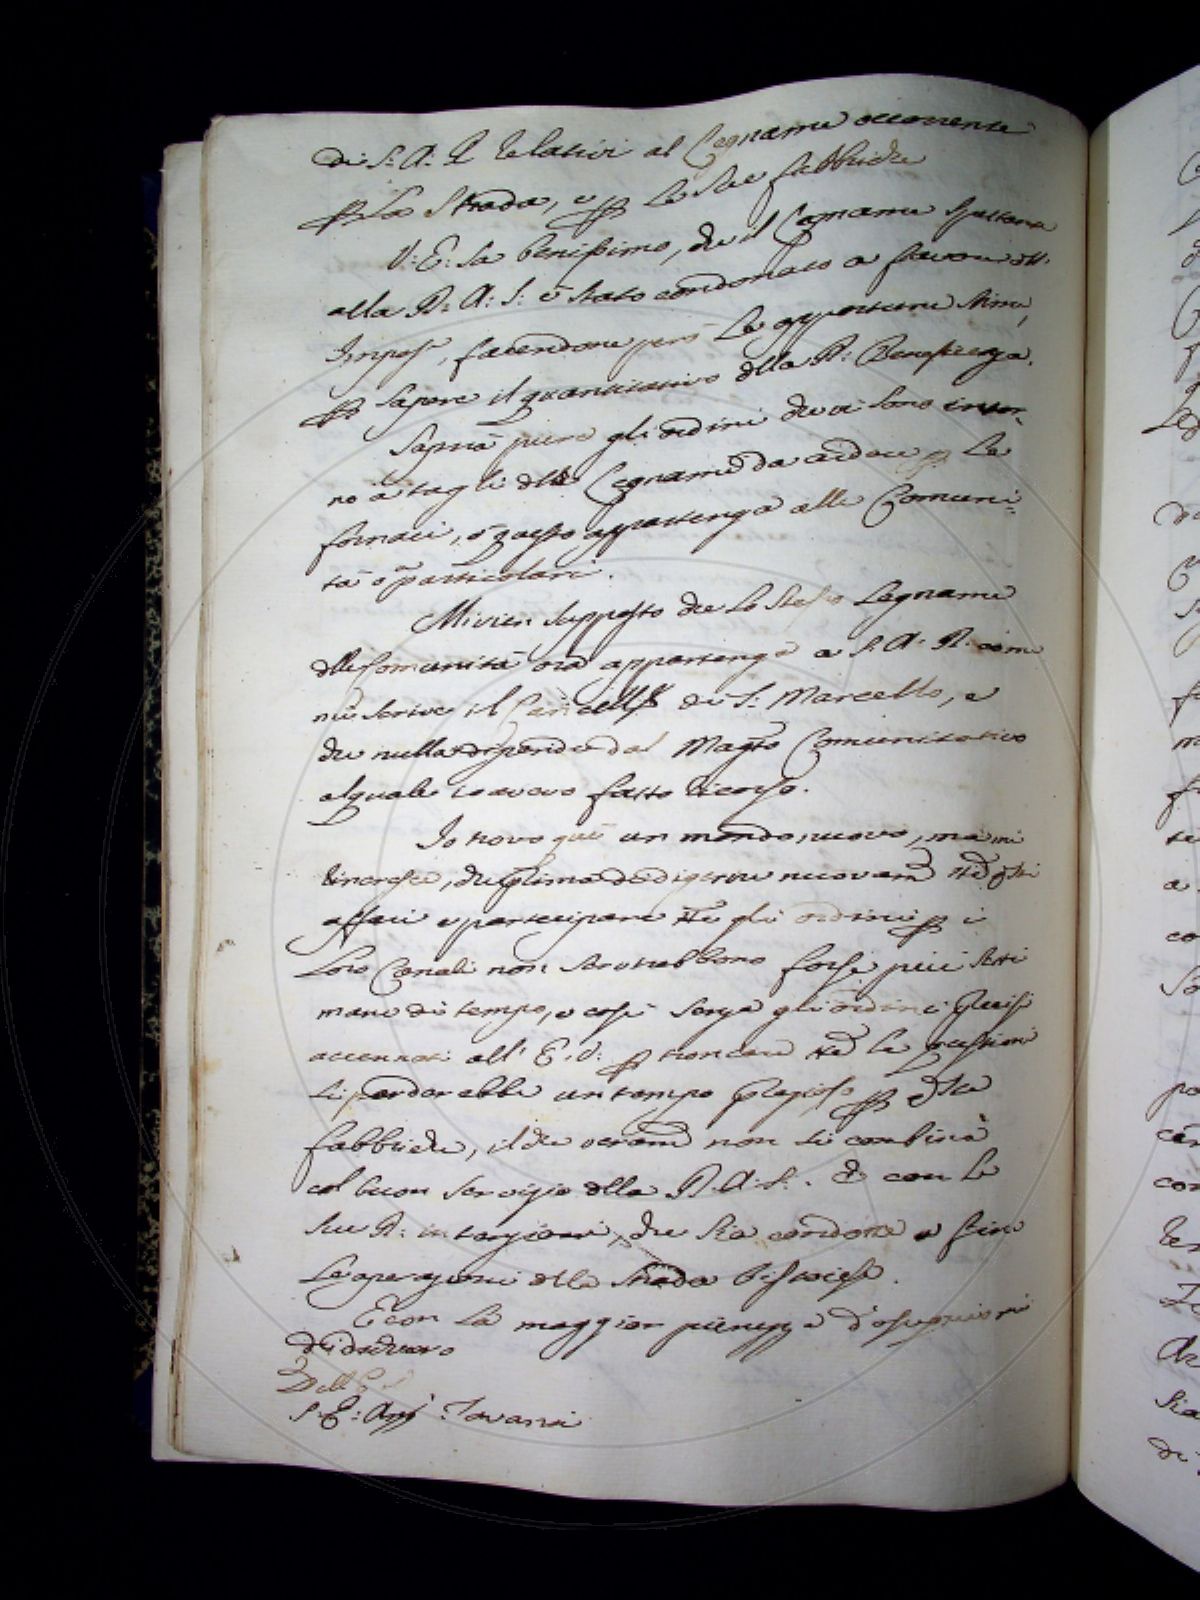 di S. A. R relativi al Legname occorrente
p la Strada, e p le Sue fabbriche
V: E: sa benissimo, che il Legname spettante
alla R: A: S: è stato condonato a favore dll'
Impos.ª, facendone però le opportune stime,
p sapere il quantitativo dlla R: Beneficenza.
Saprà pure gli ordini che vi sono intor-
no a tagli dl Legname da ardere p le
fornaci, o questo appartenga alle Comuni-
tà o particolari.
Mi vien supposto che lo stesso Legname
dlle Comunità ora appartenga a S. A. R. come
mi scrive il Cancell.e di S: Marcello, e
che nulla dipende dal Mag.to Comunitativo
al quale io avevo fatto ricorso.
Io trovo quì un mondo nuovo, ma mi
rincresce, che prima di digerire nuovam.e tti qsti
affari e partecipare tti gli ordini p i
loro Canali non servirebbono forse più setti
mane di tempo, e così senza gli ordini precisi
accennati all' E. V: p troncare tte le questioni
si perderebbe un tempo prezioso p qste
fabbriche, il che veram.e non si combina
col buon servizio dlla R. A. S. e con le
sue R: intenzioni, che sia condotta a fine
le operazioni dlla Strada Pistoiese.
E con la maggior pienezza d'ossequio mi
dichiaro
Dell'
S. E: Ang.º Tavanti